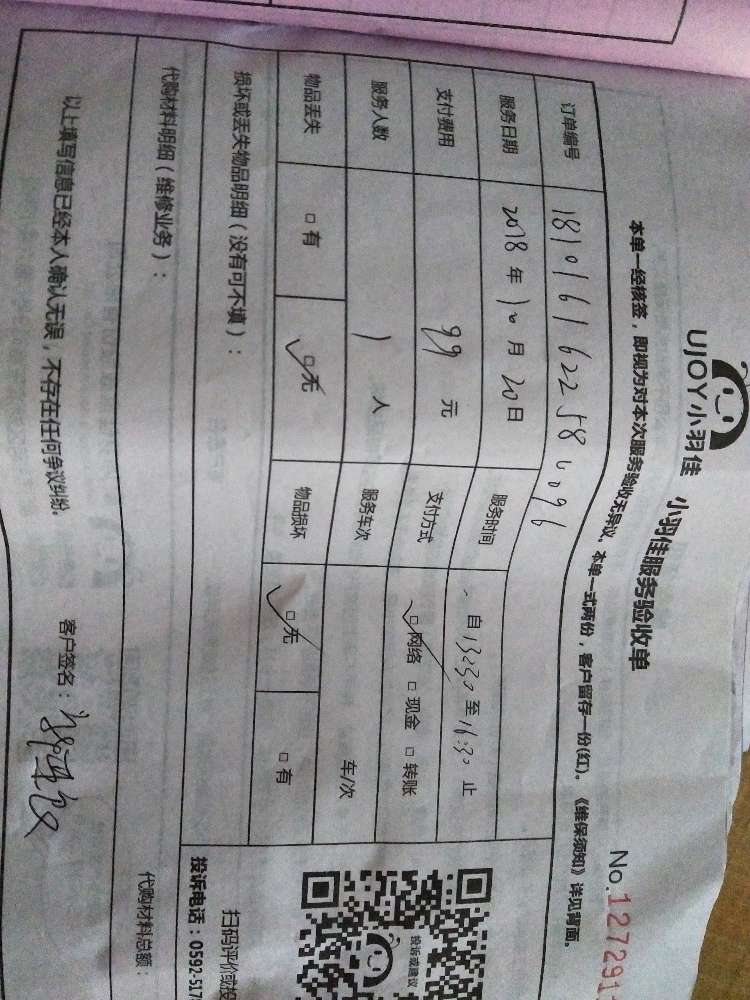 UJOY小羽佳 小羽佳服务验收单
No.127291
本单一经核签，即视为对本次服务验收无异议。本单一式两份，客户留存一份(红)。《维保须知》详见背面。
订单编号
服务日期 2018 年 10 月 20 日 服务时间 自 13:30 至 16:30 止
支付费用 99 元 支付方式 □ 网络 □ 现金 □ 转账
服务人数 1 人 服务车次 车/次
物品丢失 □ 有 □ 无 物品损坏 □ 无 □ 有
损坏或丢失物品明细（没有可不填）：
代购材料明细（维修业务）：
代购材料总额：
以上填写信息已经本人确认无误，不存在任何争议纠纷。
客户签名：
投诉或建议
扫码评价或投
投诉电话：0592-517